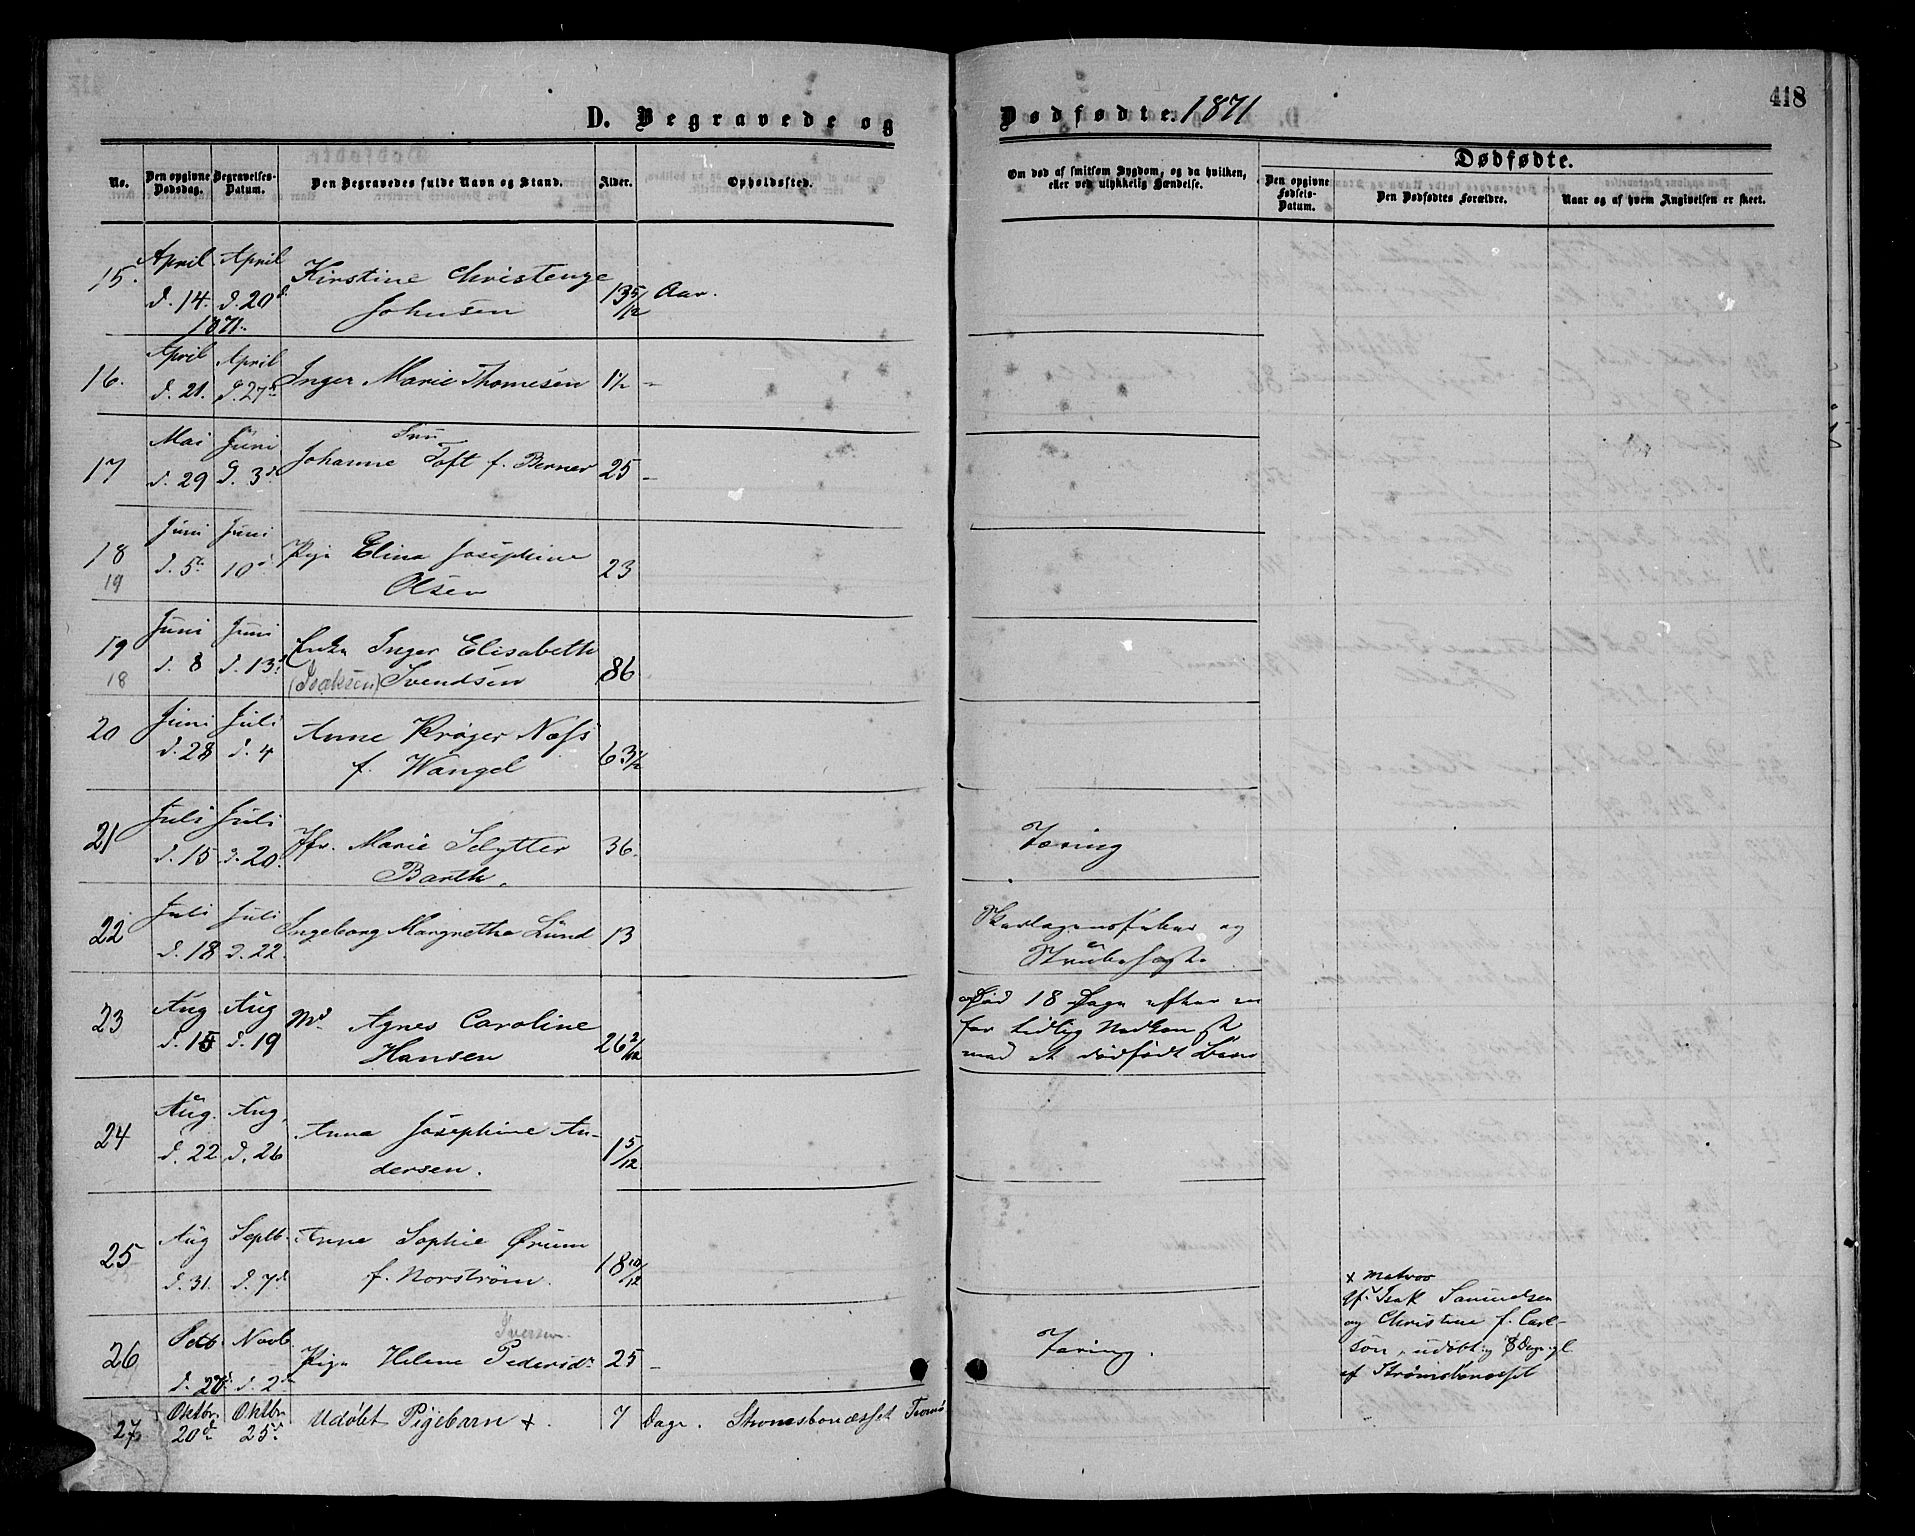 418
D. Begravede og Dødfødte. 1871
No.
Den opgivne Dødsdag.
Begravelses-Datum.
Den Begravedes fulde Navn og Stand.
Alder.
Opholdssted.
Om død af smitsom Sygdom, og da hvilken, eller ved ulykkelig Hændelse.
Dødfødte.
Den opgivne Fødsels-Datum.
Den Dødfødtes Forældre.
Naar og af hvem Angivelsen er skeet.
15. April d. 14. April d. 20d. Kirstine Christenze 13 5/12 Aar.
1871. Johnsen
16. April d. 21. April d. 27d Inger Marie Thomesen 1½ —
17 Mai d. 29 Juni d. 3d Johanne Toft f. Berner 25 —
18 Juni d. 5d Juni 10d Pige Elina Josephine 23
19 Olsen
19 Juni d. 8 Juni d. 13d Enke Inger Elisabeth 86
18 (Isaksen) Svendsen
20 Juni d. 28 Juli d. 4 Anne Krøger Næss 63½
f. Wangel
21 Juli d. 15 Juli d. 20. Jfr. Marie Schytter 36. Tæring
Barth.
22 Juli d. 18 Juli d. 22. Ingeborg Margrethe Lund 13 Skarlagensfeber og
Strubehoste
23 Aug d. 15 Aug d. 19 Md Agnes Caroline 26 2/12 Død 18 Dage efter en
Hansen for tidlig Nedkomst
med et dødfødt Barn
24 Aug. d. 22 Aug. d. 26 Anna Josephine An- 1 5/12
dersen.
25 Aug d. 31. Septb. d. 7d Anne Sophie Ørum 18 10/12
f. Norstrøm.
Iversen
26 Octb d. 27d Novb. d. 2d Pige Helene Pedersdr 25 — Tæring.
27 Oktbr. 20d Oktbr. 25d Udøbt Pigebarn + . 7 Dage. Strømsbonæsset Tromø
+ Matros
Isak Samuelsen
og Christine f. Carl-
son, udøbt
af Strømsbonæsset